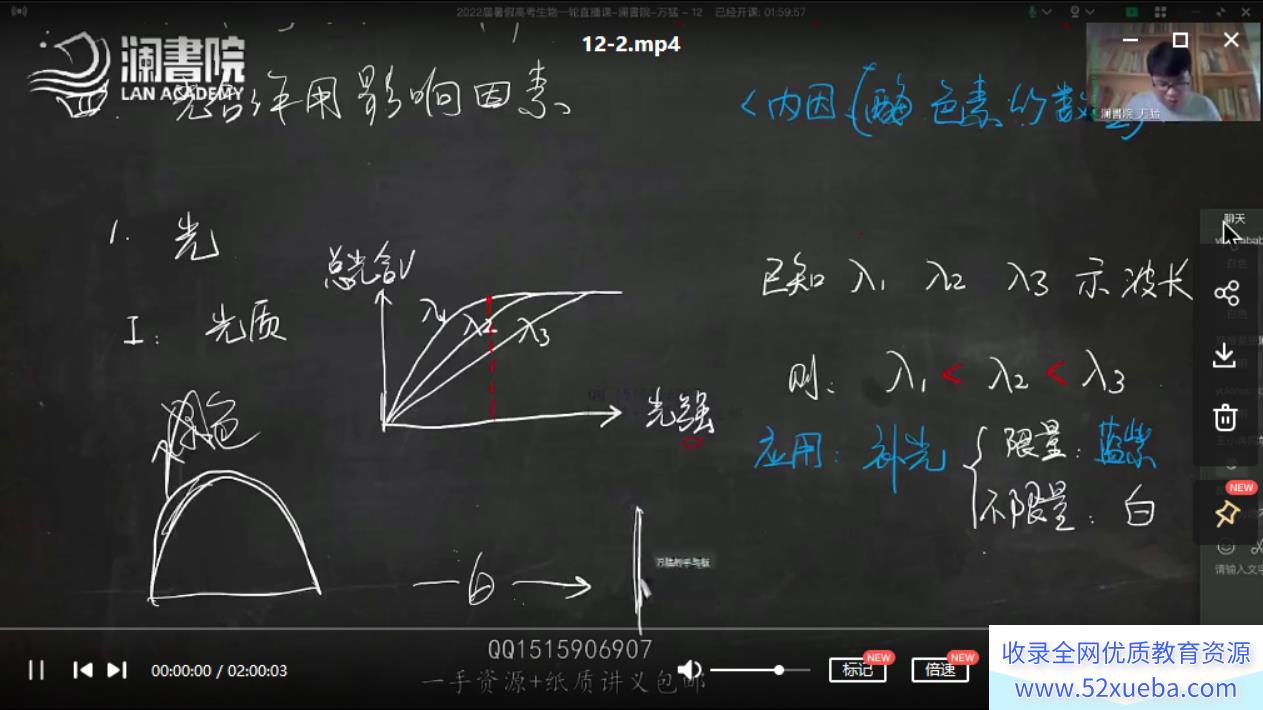 2022届暑假高考生物一轮直播课-澜書院-万猛 - 12 已经开课: 01:59:57
12-2.mp4
澜書院
LAN ACADEMY
四. 光合作用影响因素
<内因(酶 色素的数
澜書院 万猛
聊天
1. 光
总光合V
已知 λ1 λ2 λ3 示波长
I: 光质
λ1
λ2
λ3
则: λ1 < λ2 < λ3
光强
应用: 补光
限量: 蓝紫
不限量: 白
NEW
白
请输入文字
QQ1515906907
一手资源+纸质讲义包邮
00:00:00 / 02:00:03
标记
NEW
倍速
NEW
收录全网优质教育资源
www.52xueba.com